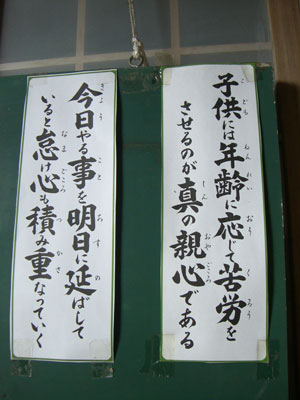 子供には年齢に応じて苦労を
させるのが真の親心である
今日やる事を明日に延ばして
いると怠け心も積み重なっていく